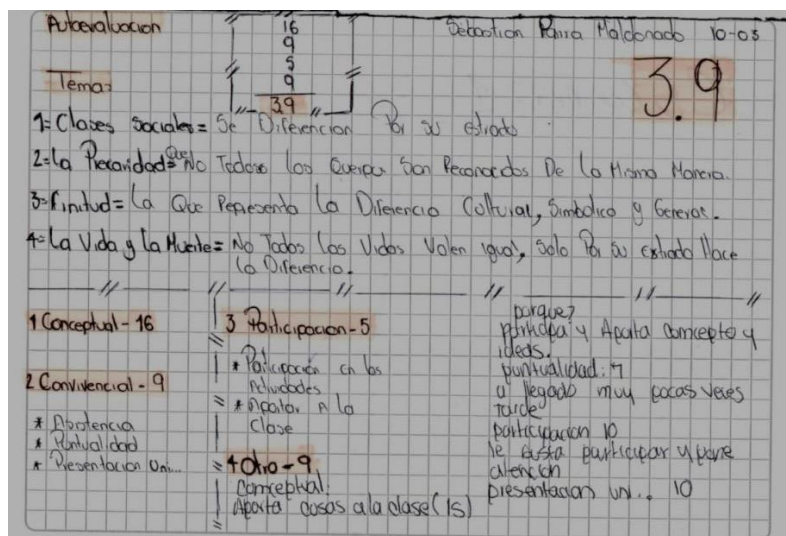 Autoevaluacion
16
9
5
9
39
Sebastian Parra Maldonado 10-03
3.9
Tema:
1= Clases Sociales = Se Diferencian Por su estrado
2= La Precaridad = Que No Todoso los Cuerpos Son Reconocidos De la Misma Manera.
3= Finitud = La Que Representa la Diferencia Coltural, Simbolica y Generos.
4= La Vida y La Muerte = No Todas las Vidas Valen igual, Solo Por su estrado Hace
la Diferencia.
1 Conceptual - 16
2 Convivencial - 9
* Asistencia
* Puntualidad
* Presentacion Uni...
3 Participacion - 5
* Participación en las
Actividades
* Aportar A la
Clase
4 Otro - 9
Comceptual:
Aporta cosas ala clase (15)
porque?
participa y Aporta comcepto y
ideas.
puntualidad: 7
a llegado muy pocas veces
tarde
participacion 10
le gusta participar y pone
atención
presentacion un.. 10